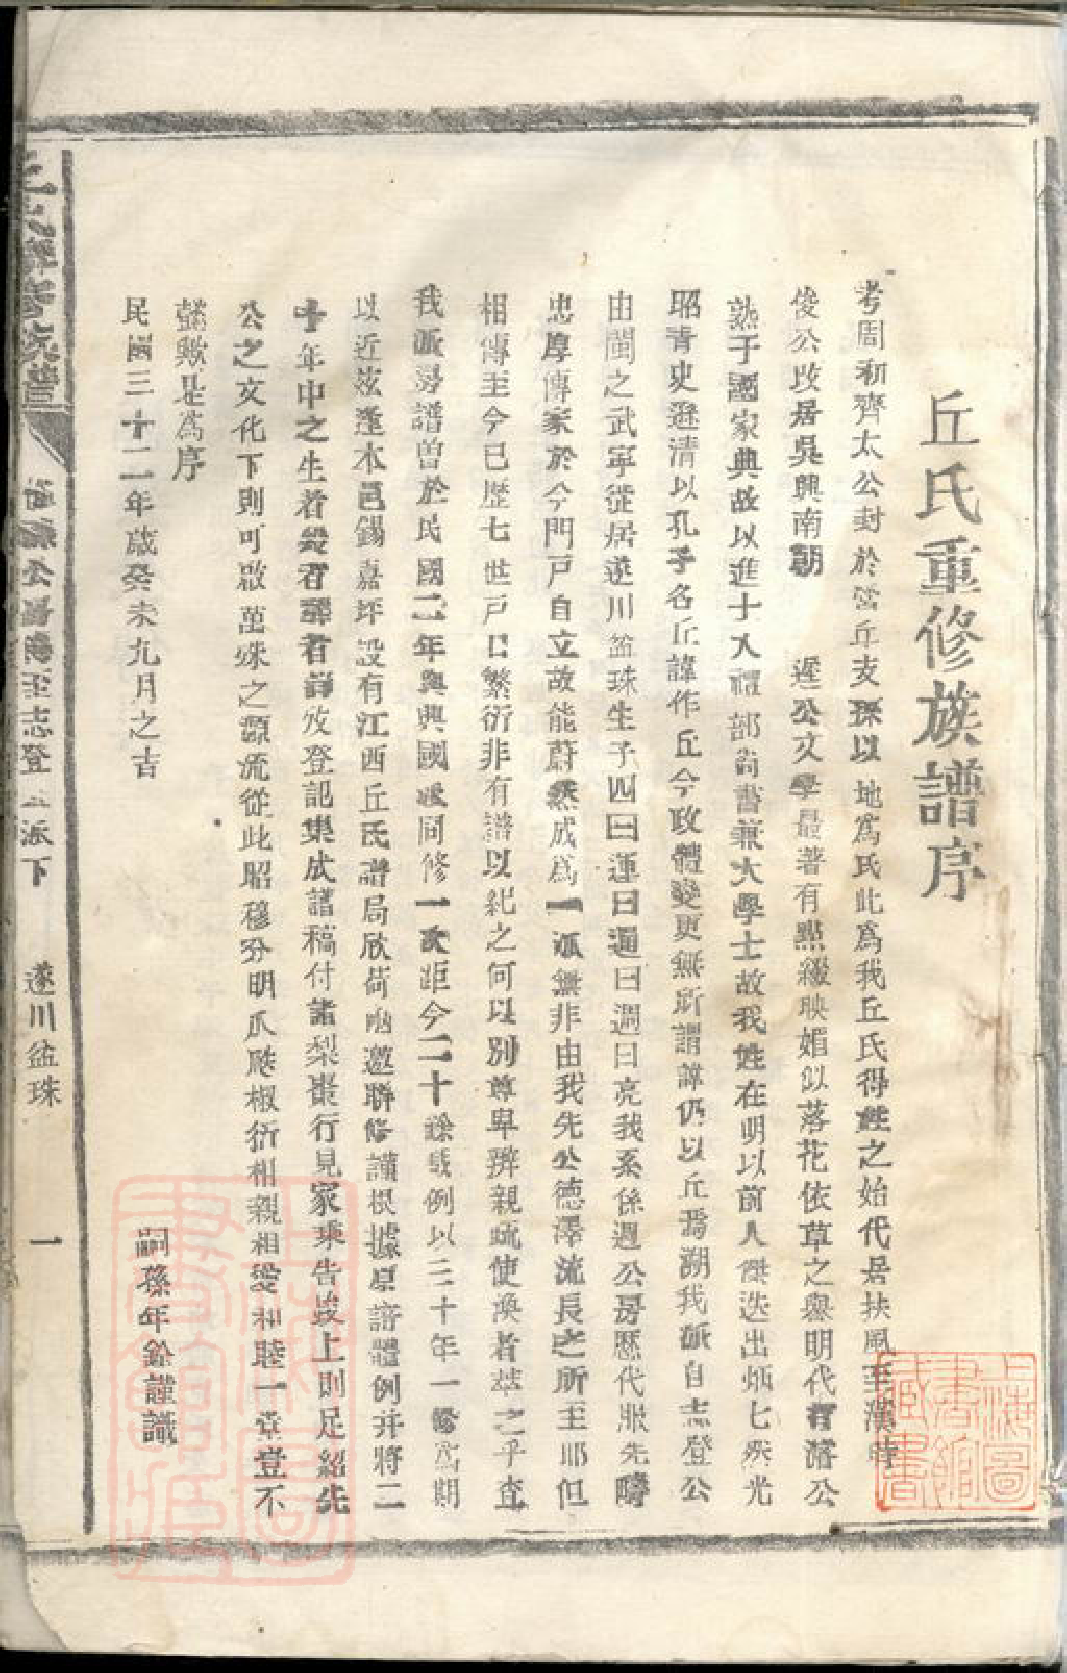 丘氏重修族譜序
考周初齊太公封於營丘支孫以地爲氏此爲我丘氏得姓之始代居扶風至漢時
俊公改居吳興南朝 遲公文學最著有點綴映媚似落花依草之與明代有濬公
熟于國家典故以進士入禮部尚書兼大學士故我姓在明以前人傑迭出炳七然光
昭青史遜清以孔子名丘諱作丘今政體變更無所謂諱仍以丘爲溯我派自志登公
由閩之武平從居遂川盆珠生子四曰運曰通曰週曰亮我系係週公房歷代服先疇
忠厚傳家於今門戸自立故能蔚然成爲一派無非由我先公德澤流長之所至耶但
相傳至今已歷七世戸口繁衍非有譜以紀之何以別尊卑辨親疏使渙者萃之乎查
我派房譜曾於民國二年與興國 同修一次距今二十餘歲例以三十年一修爲期
以近茲逢本邑錫嘉坪設有江西丘氏譜局欣荷 邀聯修謹根據原譜體例并將二
十年中之生者 者 者 登記集成譜稿付諸梨棗行見家乘告竣上則足紹先
公之文化下則可啟萬殊之源流從此昭穆分明瓜瓞椒衍相親相愛和睦一堂豈不
懿歟是爲序
民國三十二年歲癸未九月之吉 嗣孫年 謹識
丘氏聯修族譜 公房 至志登公派下 遂川盆珠 一
上海圖書館藏書